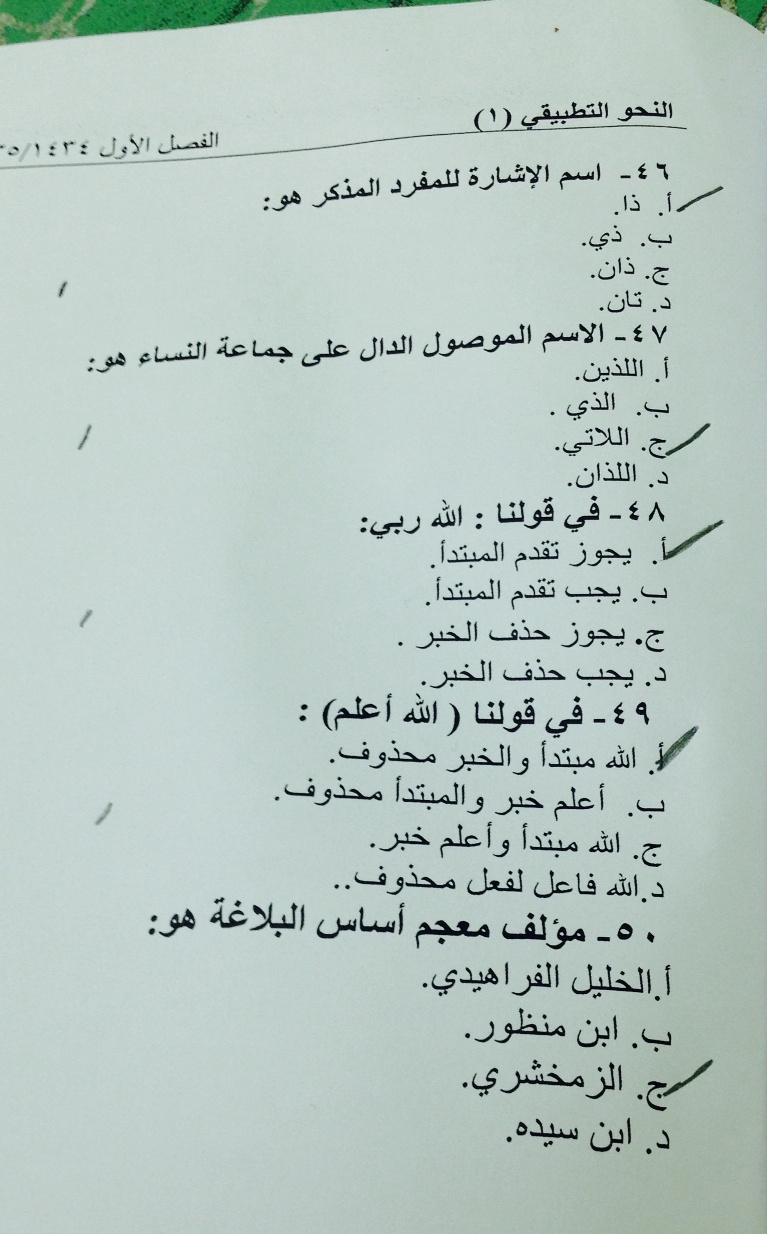 النحو التطبيقي (١)
الفصل الأول ١٤٣٤/
٤٦- اسم الإشارة للمفرد المذكر هو:
أ. ذا.
ب. ذي.
ج. ذان.
د. تان.
٤٧- الاسم الموصول الدال على جماعة النساء هو:
أ. اللذين.
ب. الذي .
ج. اللاتي.
د. اللذان.
٤٨- في قولنا : الله ربي:
أ. يجوز تقدم المبتدأ.
ب. يجب تقدم المبتدأ.
ج. يجوز حذف الخبر .
د. يجب حذف الخبر.
٤٩- في قولنا ( الله أعلم) :
أ. الله مبتدأ والخبر محذوف.
ب. أعلم خبر والمبتدأ محذوف.
ج. الله مبتدأ وأعلم خبر.
د.الله فاعل لفعل محذوف..
٥٠- مؤلف معجم أساس البلاغة هو:
أ.الخليل الفراهيدي.
ب. ابن منظور.
ج. الزمخشري.
د. ابن سيده.